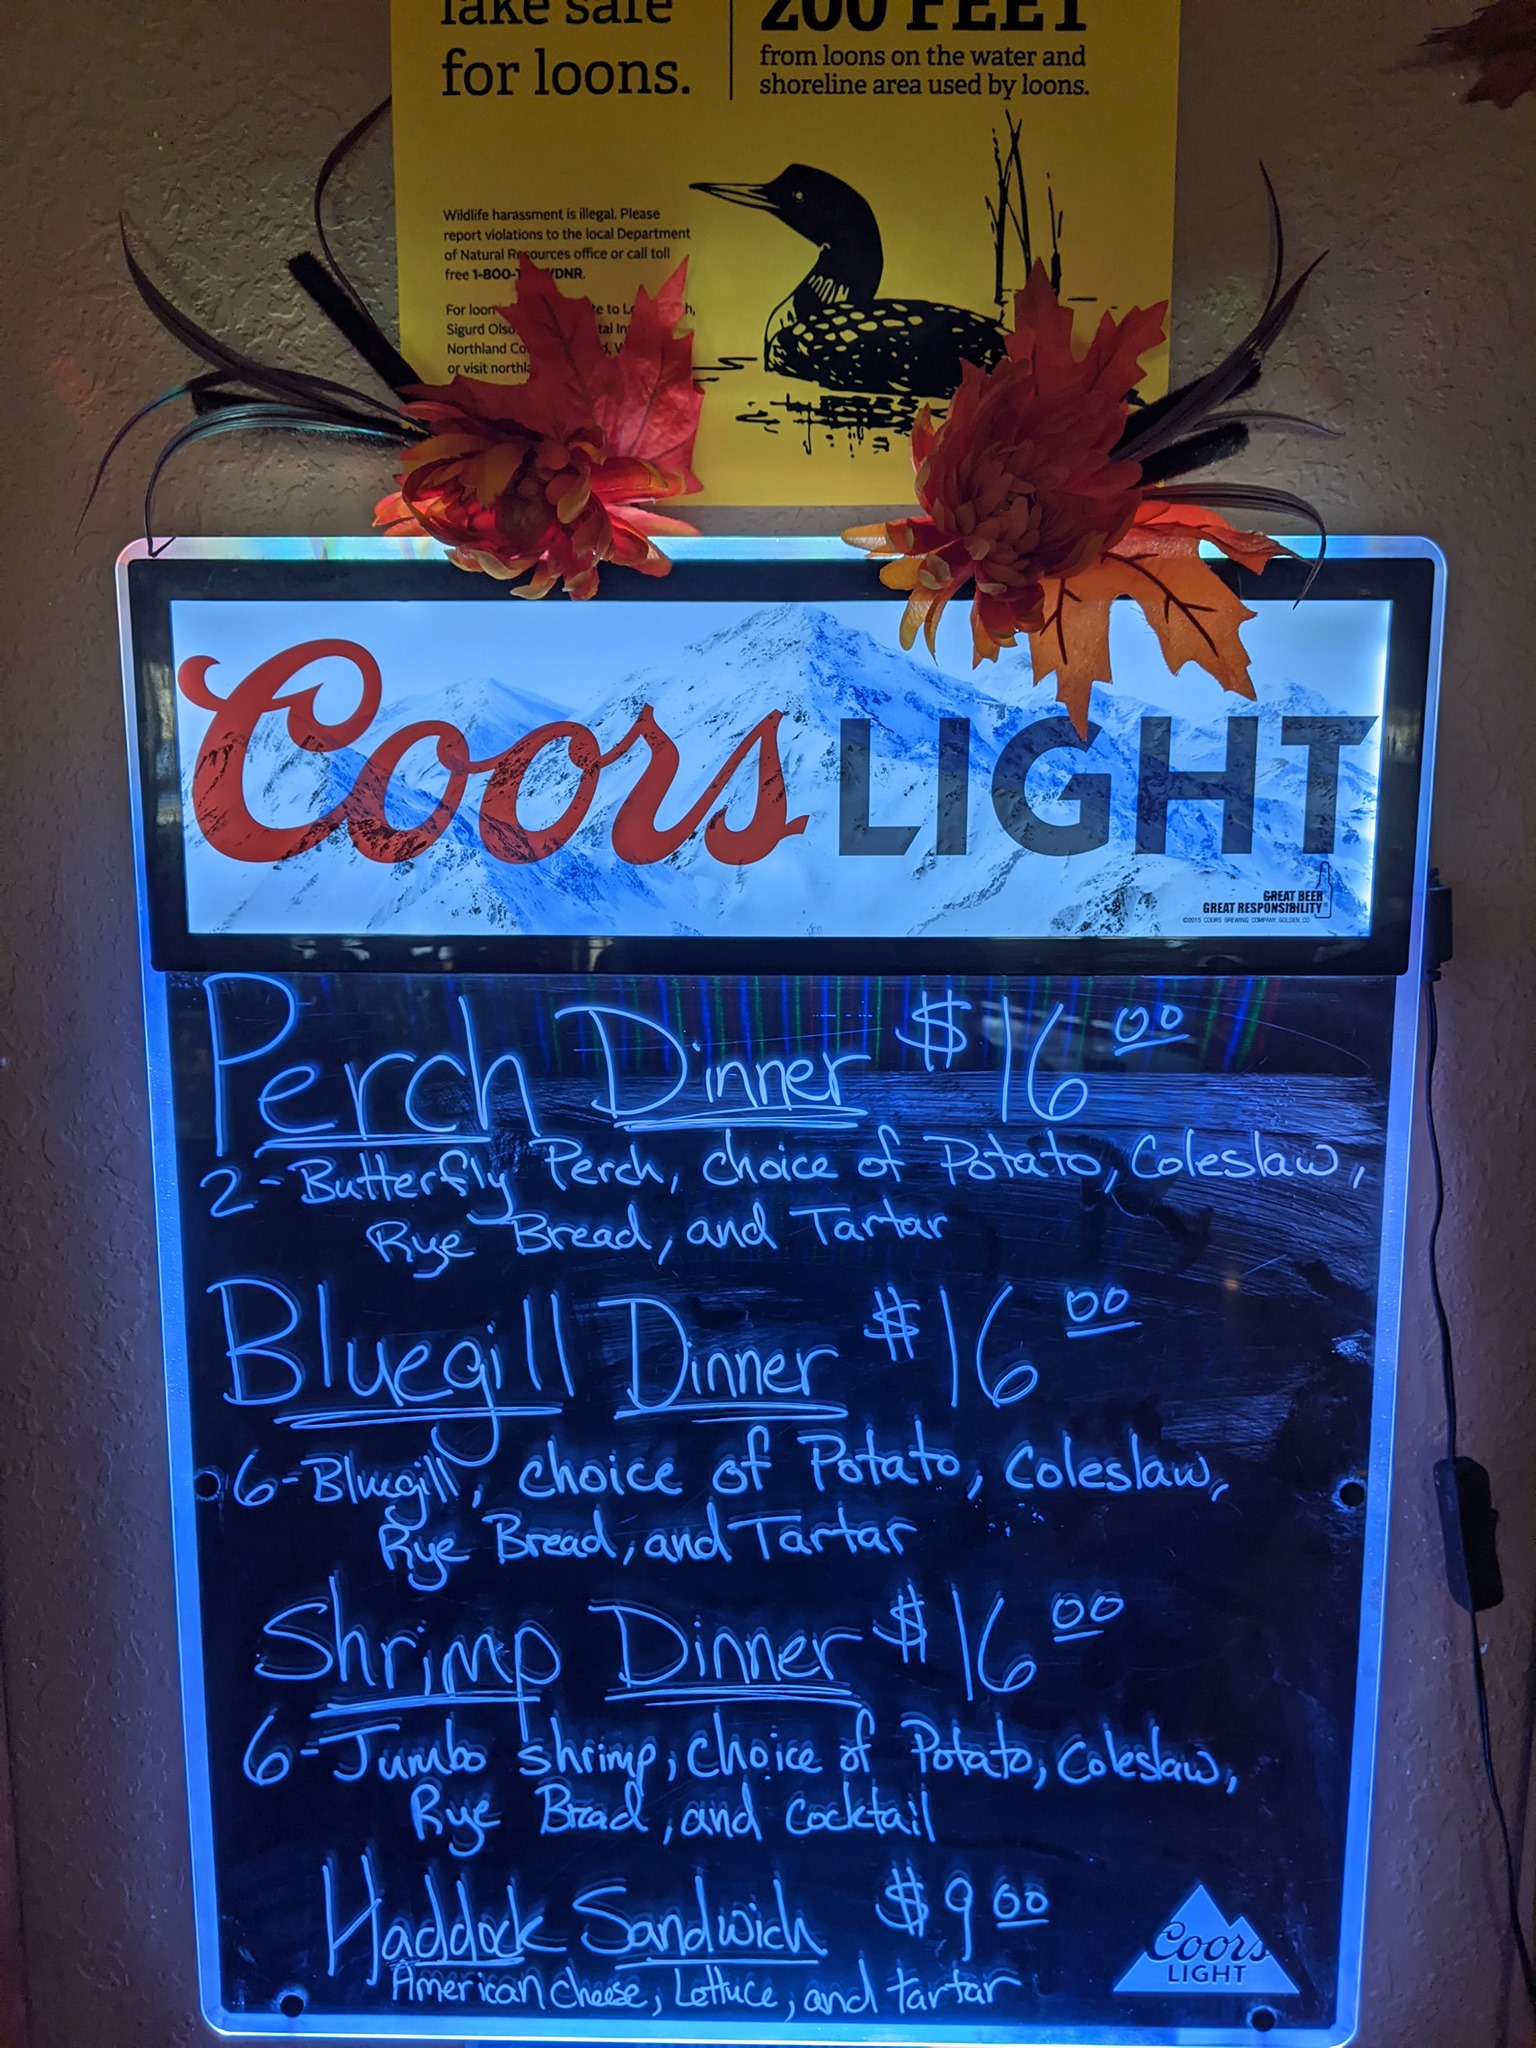 lake safe
for loons.
200 FEET
from loons on the water and
shoreline area used by loons.
Wildlife harassment is illegal. Please
report violations to the local Department
of Natural Resources office or call toll
free 1-800- DNR.
For loon te to
Sigurd tal
Northland
or visit
Coors LIGHT
GREAT BEER
GREAT RESPONSIBILITY
©2015 COORS BREWING COMPANY, GOLDEN, CO
Perch Dinner $16.00
2-Butterfly Perch, choice of Potato, Coleslaw,
Rye Bread, and Tartar
Bluegill Dinner $16.00
6-Bluegill, choice of Potato, Coleslaw,
Rye Bread, and Tartar
Shrimp Dinner $16.00
6-Jumbo shrimp, choice of Potato, Coleslaw,
Rye Bread, and Cocktail
Haddock Sandwich $9.00
American cheese, Lettuce, and tartar
Coors
LIGHT